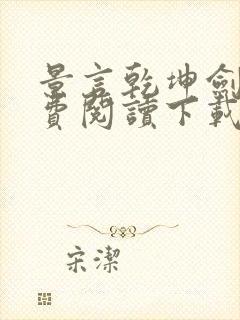 景言乾坤劍
費閱讀下載
宋潔